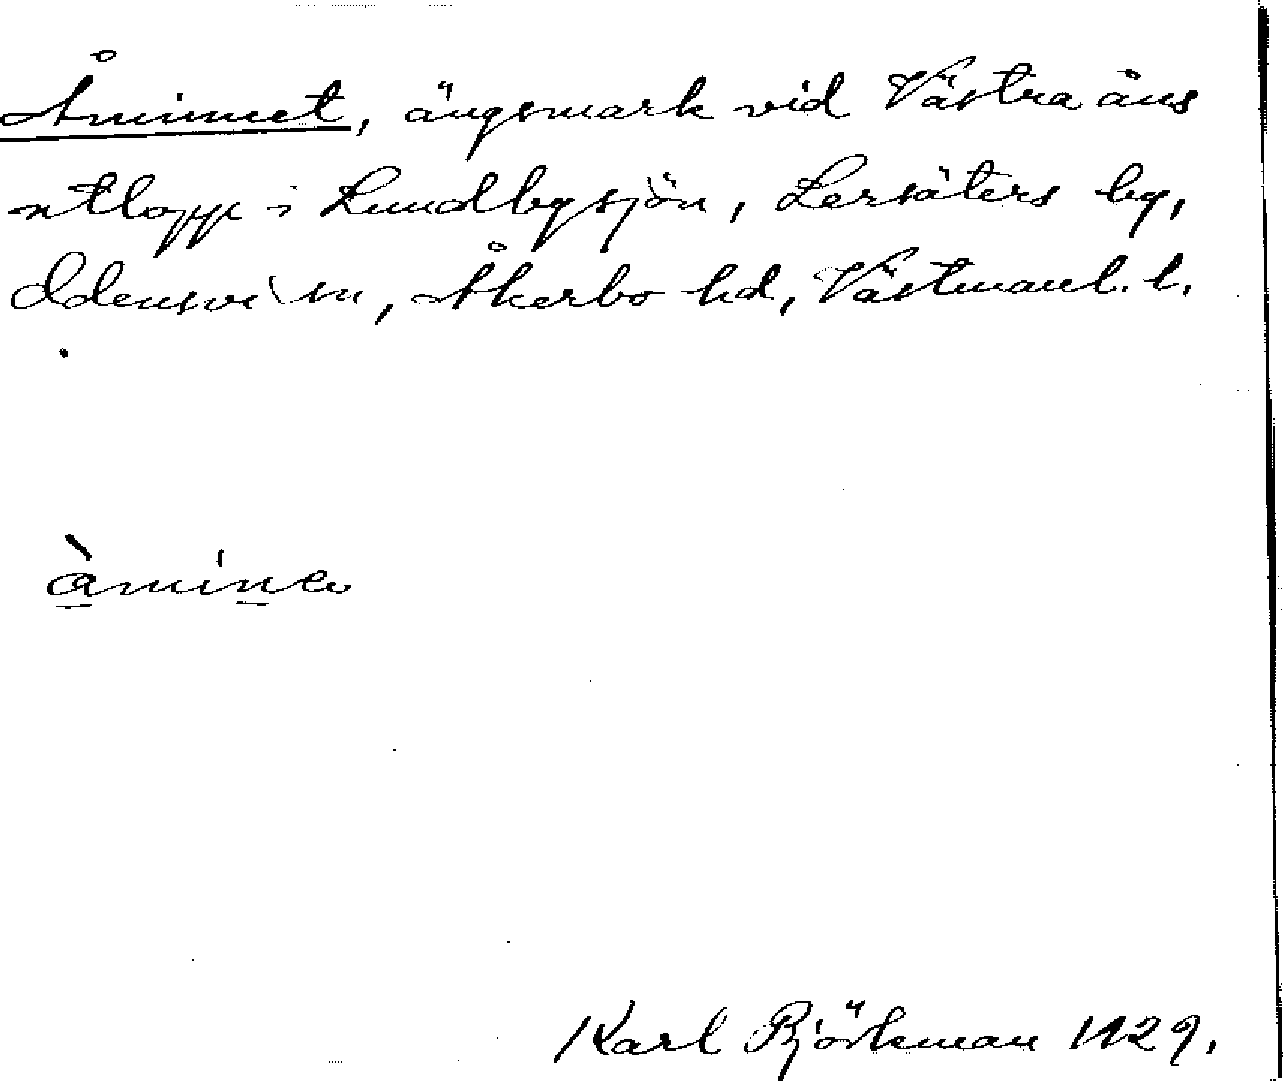 Åminnet, ängsmark vid Västra åns
utlopp i Lundbysjön, Lersäters by,
Odensvi sn, Åkerbo hd, Västmanl. l.
àmína
Karl Björkman 1929.